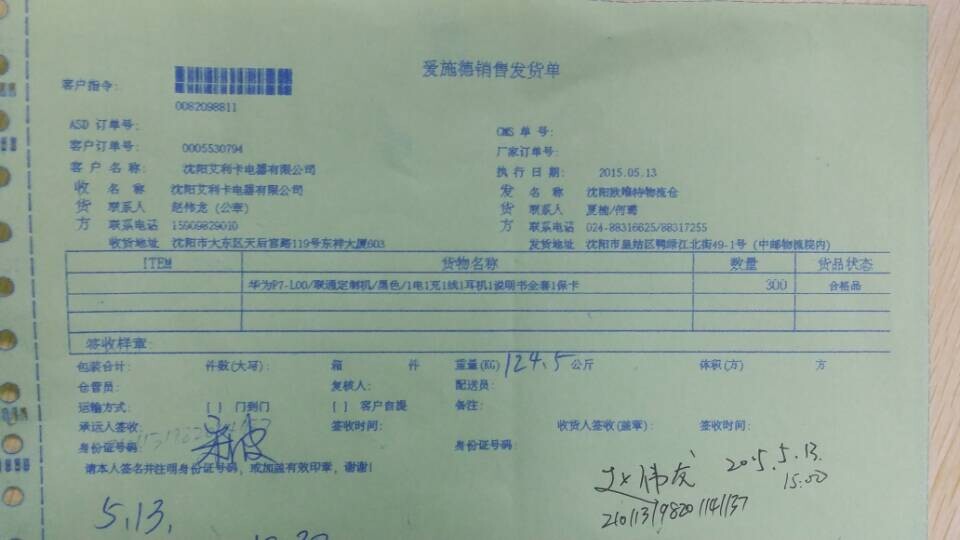 爱施德销售发货单
客户指令:
0082098811
ASD 订单号:
CMS 单 号:
客户订单号: 0005530794
厂家订单号:
客 户 名 称: 沈阳艾利卡电器有限公司
执 行 日 期: 2015.05.13
收 名 称 沈阳艾利卡电器有限公司
发 名 称 沈阳欧唯特物流仓
货 联系人 赵伟龙 (公章)
货 联系人 夏楠/何璐
方 联系电话 15909829010
方 联系电话 024-88316625/88317255
收货地址 沈阳市大东区天后宫路119号东祥大厦603
发货地址 沈阳市皇姑区鸭绿江北街49-1号 (中邮物流院内)
ITEM 货物名称 数量 货品状态
华为P7-L00/联通定制机/黑色/1电1充1线1耳机1说明书全套1保卡 300 合格品
签收样章:
包装合计: 件数(大写): 箱 件 重量(KG) 124.5 公斤 体积(方) 方
仓管员: 复核人: 配送员:
运输方式: [ ] 门到门 [ ] 客户自提 备注:
承运人签收: 签收时间: 收货人签收(盖章): 签收时间:
身份证号码: 身份证号码:
请本人签名并注明身份证号码, 或加盖有效印章, 谢谢!
赵伟龙 2015.5.13.
15:00
210113198201141137
5.13.